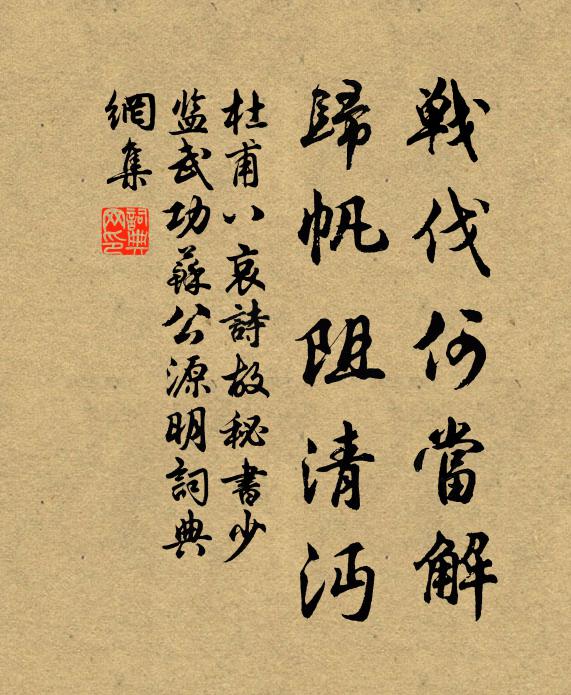 戰伐何當解
歸帆阻清沔
杜甫八哀詩故秘書少
监武功蘇公源明詞典
網集
詞典
网印